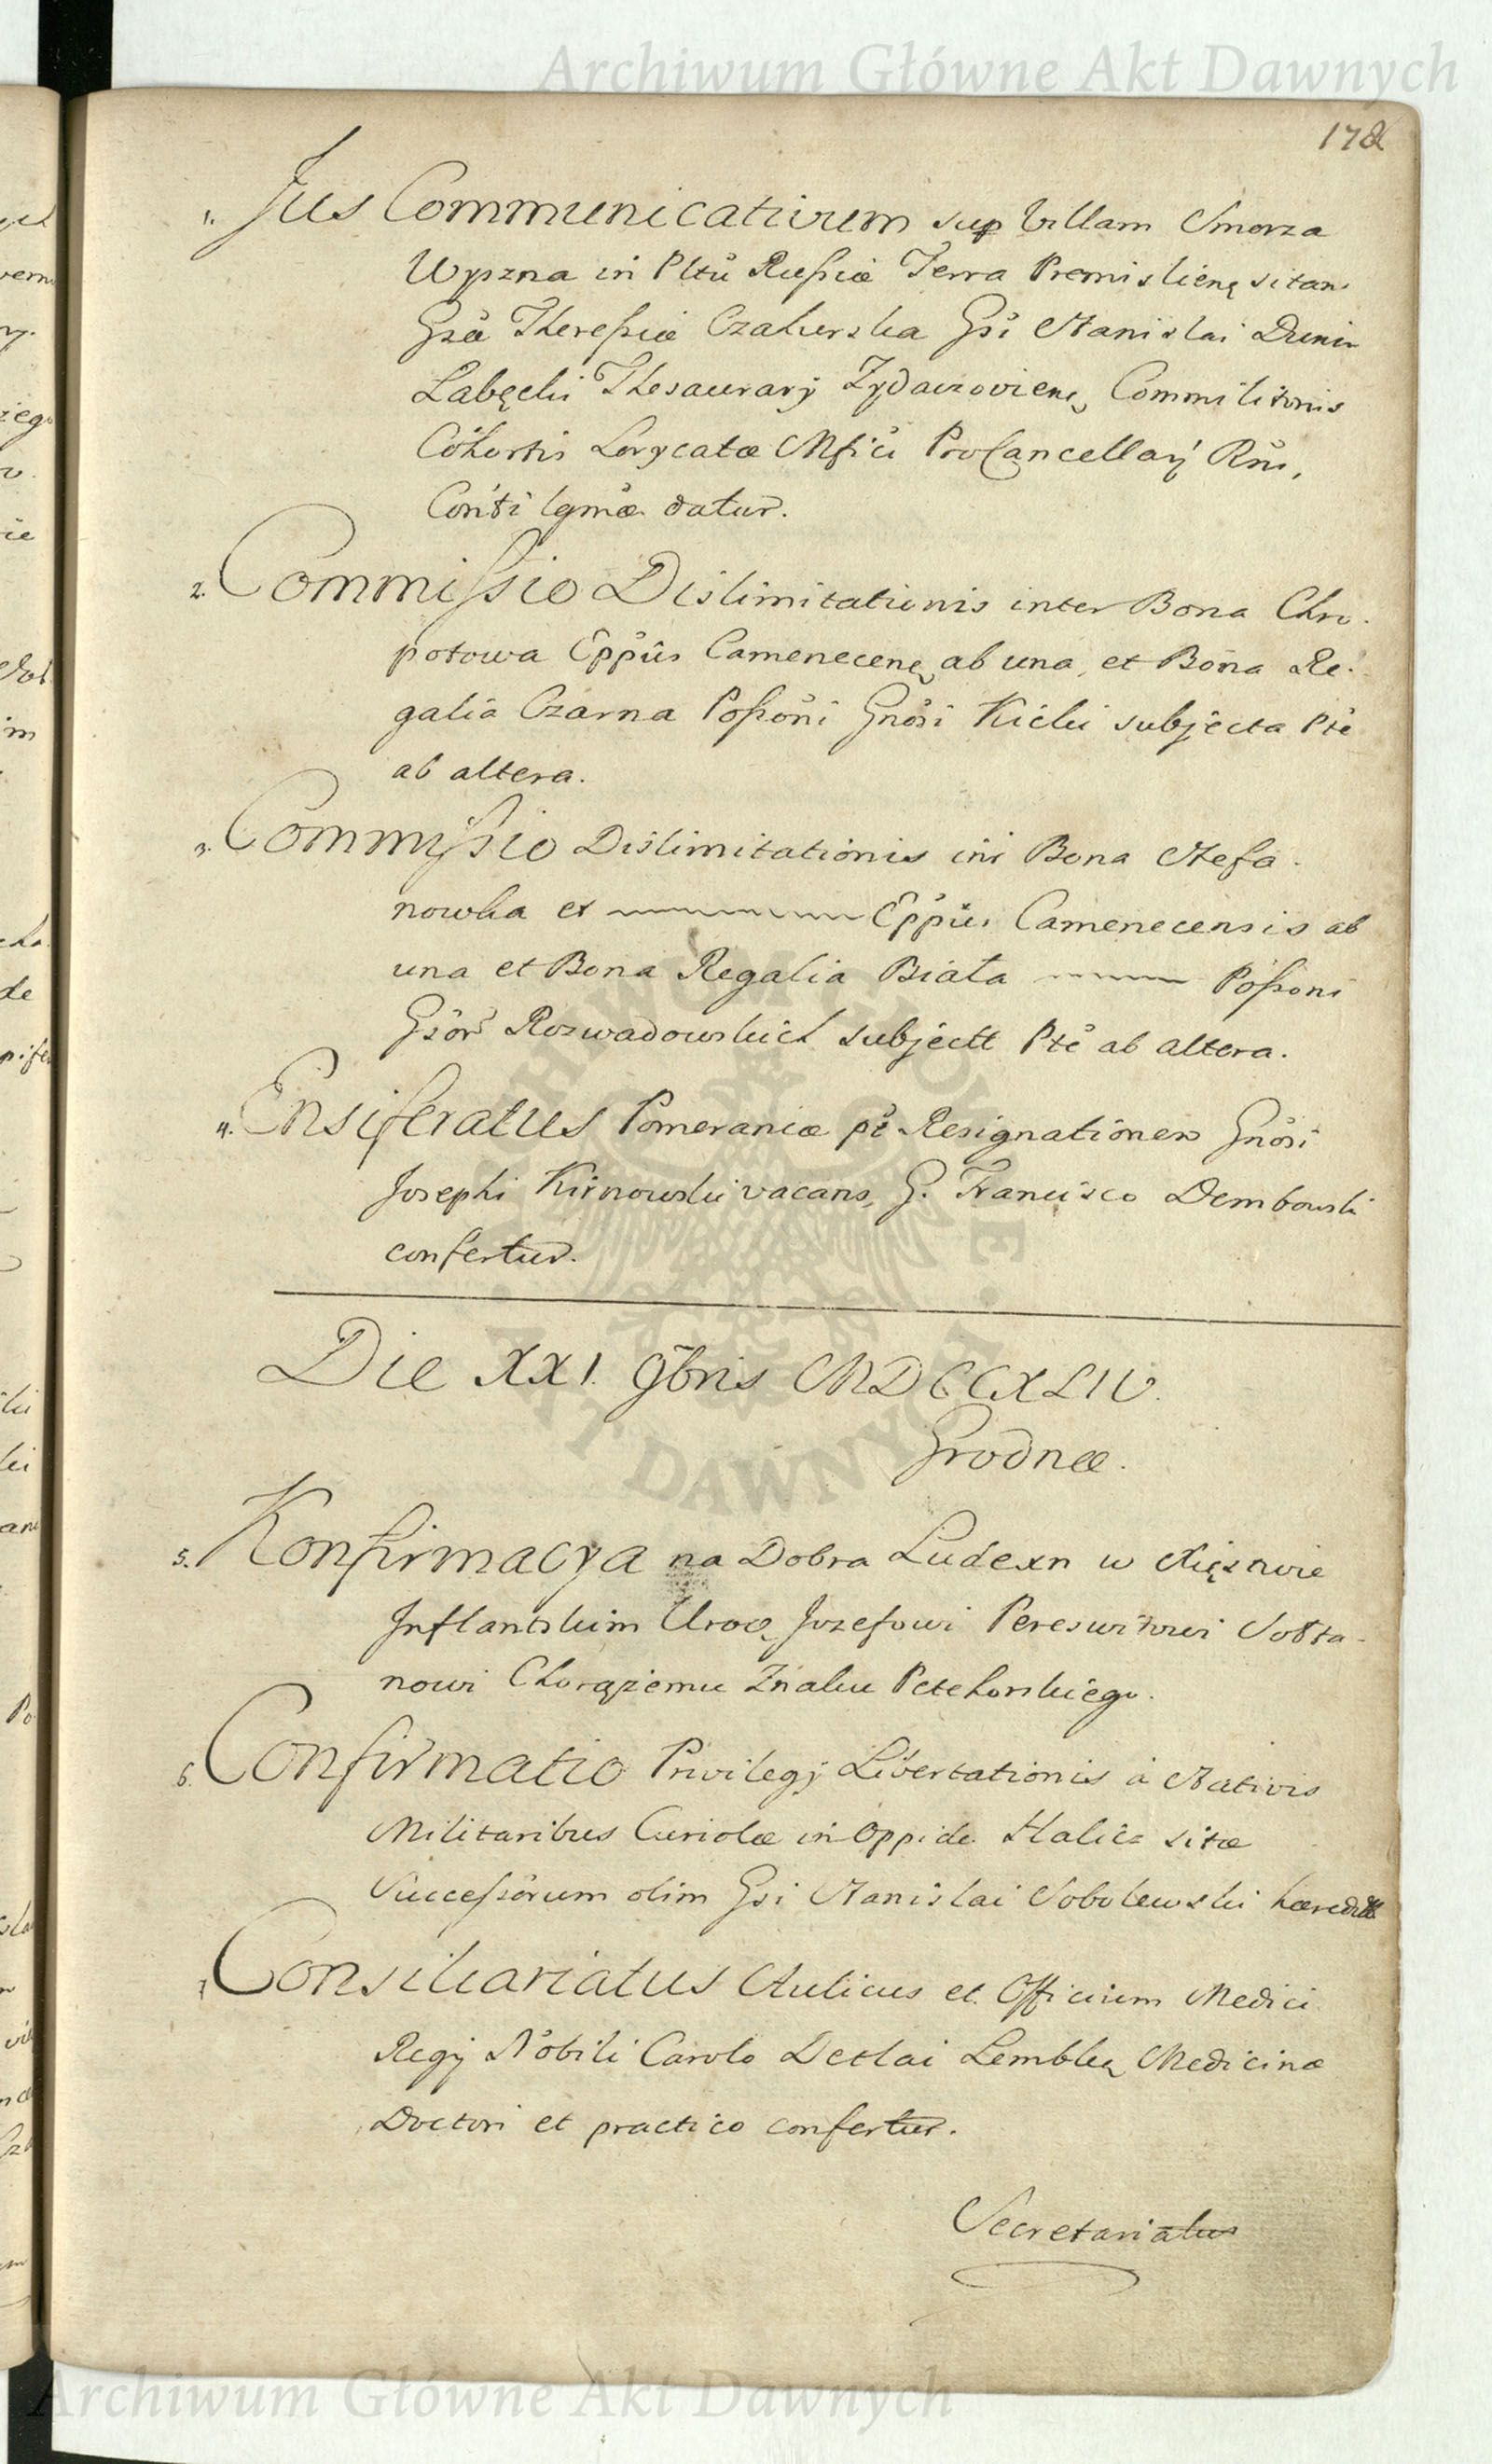 Archiwum Główne Akt Dawnych
178
1. Jus Communicativum sup Villam Smorza
Wyszna in Pltu Russiæ Terra Premisliens sitam
Gsæ Theressiæ Czaturska Gsi Stanislai Dunin
Labęcki Thesaurarij Zydaczoviens Commilitonis
Cohortis Lorycatæ Mfici ProCancellarij Rni,
Conti lgmæ datur.
2. Commissio Dislimitationis inter Bona Chro-
potowa Eppûs Camenecens ab una, et Bona Re-
galia Czarna Possoni Gnosi Kicki subjecta Pte
ab altera.
3. Commissio Dislimitationis int Bona Stefa-
nowka et Eppûs Camenecensis ab
una et Bona Regalia Biała Possoni
Gsor Rozwadowskich subjectt Pte ab altera.
4. Ensiferatus Pomeraniæ pr Resignationem Gnosi
Josephi Kirnowski vacans, G. Francisco Dembowski
confertur.
Die XXI. 9bris MDCCXLIV.
Grodnæ.
5. Konfirmacya na Dobra Ludexn w Xięstwie
Inflantskim Urod Jozefowi Pereswitowi Sołta-
nowi Chorążemu Znaku Petehorskiego.
6. Confirmatio Privilegij Libertationis à Stativis
Militaribus Curiolæ in Oppido Halicz sitæ
Successorum olim Gsi Stanislai Sobolewski hæreditt
7. Consiliariatus Aulicus et Officium Medici
Regij Nobili Carolo Detlai Lembke Medicinæ
Doctori et practico confertur.
Secretariatus
Archiwum Główne Akt Dawnych